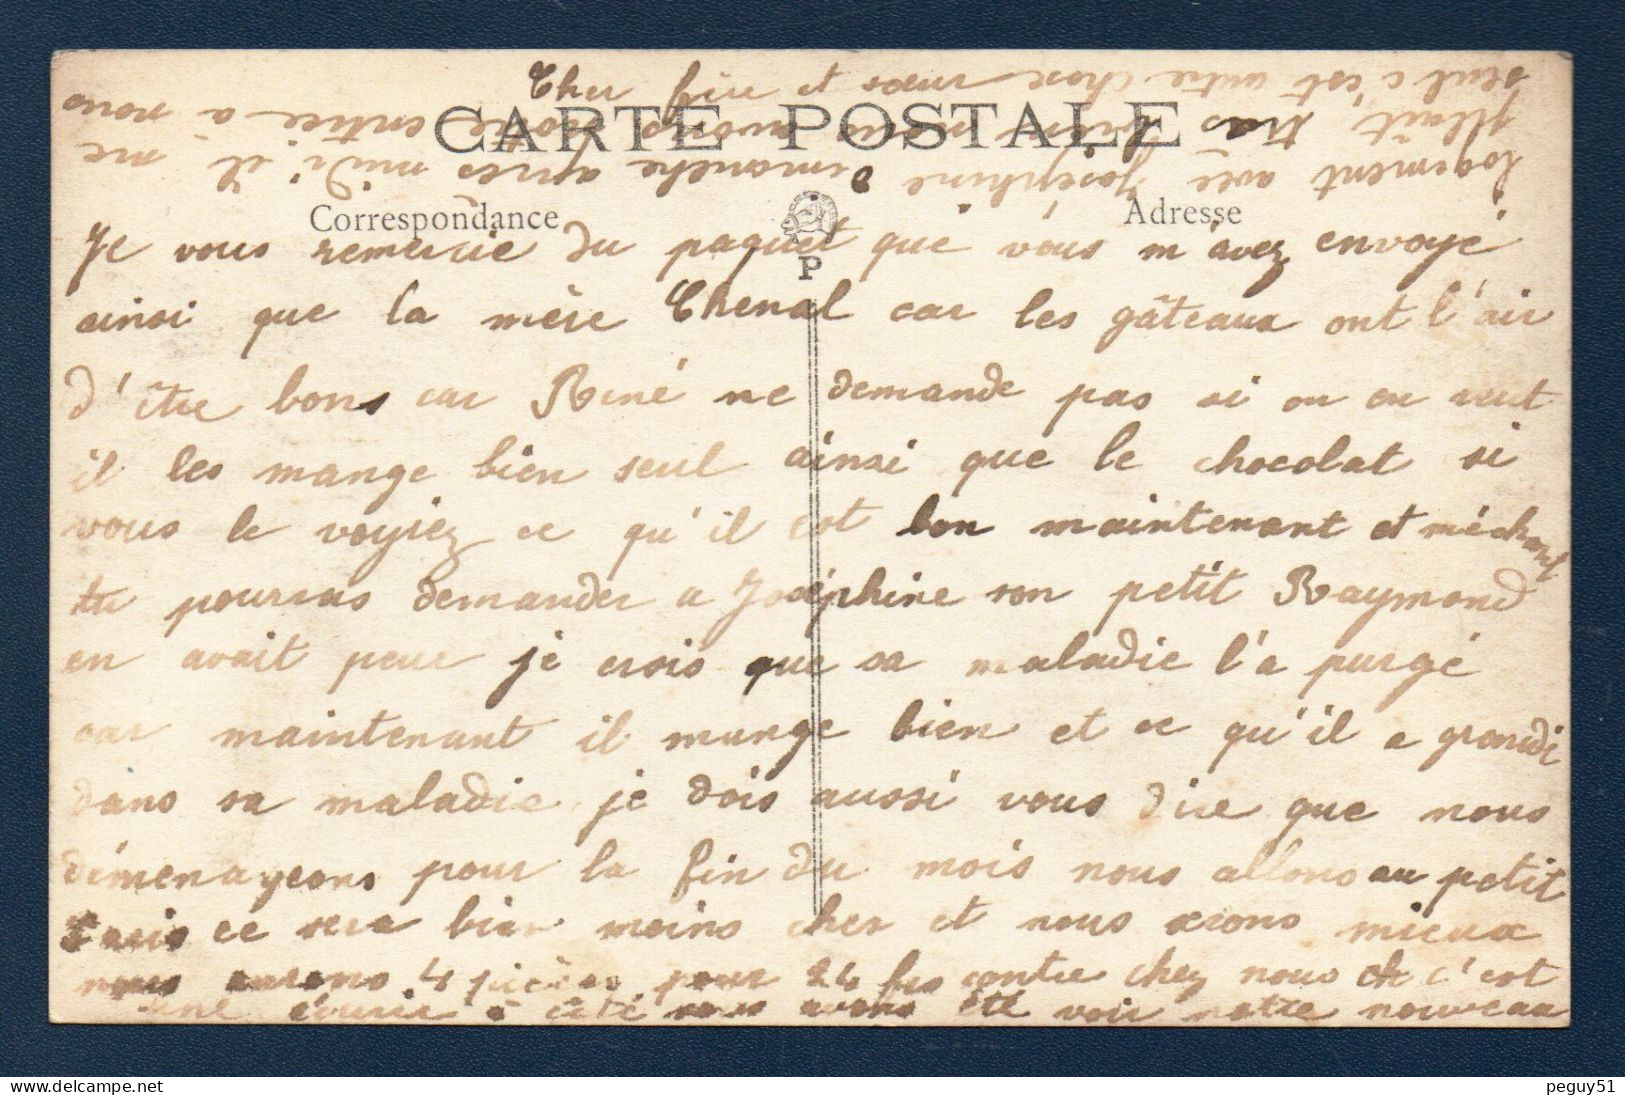 Cher frère et sœur
CARTE POSTALE
Correspondance
Adresse
P
Je vous remercie du paquet que vous m'avez envoyé
ainsi que la mère Chenal car les gâteaux ont l'air
d'être bons car René ne demande pas si on en veut
il les mange bien seul ainsi que le chocolat si
vous le voyiez ce qu'il est bon maintenant et méchant
tu pourras demander a Joséphine son petit Raymond
en avait peur je crois que sa maladie l'a purgé
car maintenant il mange bien et ce qu'il a grandi
dans sa maladie je dois aussi vous dire que nous
déménageons pour la fin du mois nous allons au petit
Paris ce sera bien moins cher et nous serons mieux
nous aurons 4 pièces pour 24 frs contre chez nous et c'est
une écurie à côté nous avons été voir notre nouveau
logement avec Joséphine dimanche après midi il me
plaît très bien nous avons notre entrée à nous
seul c'est autre chose
peguy51